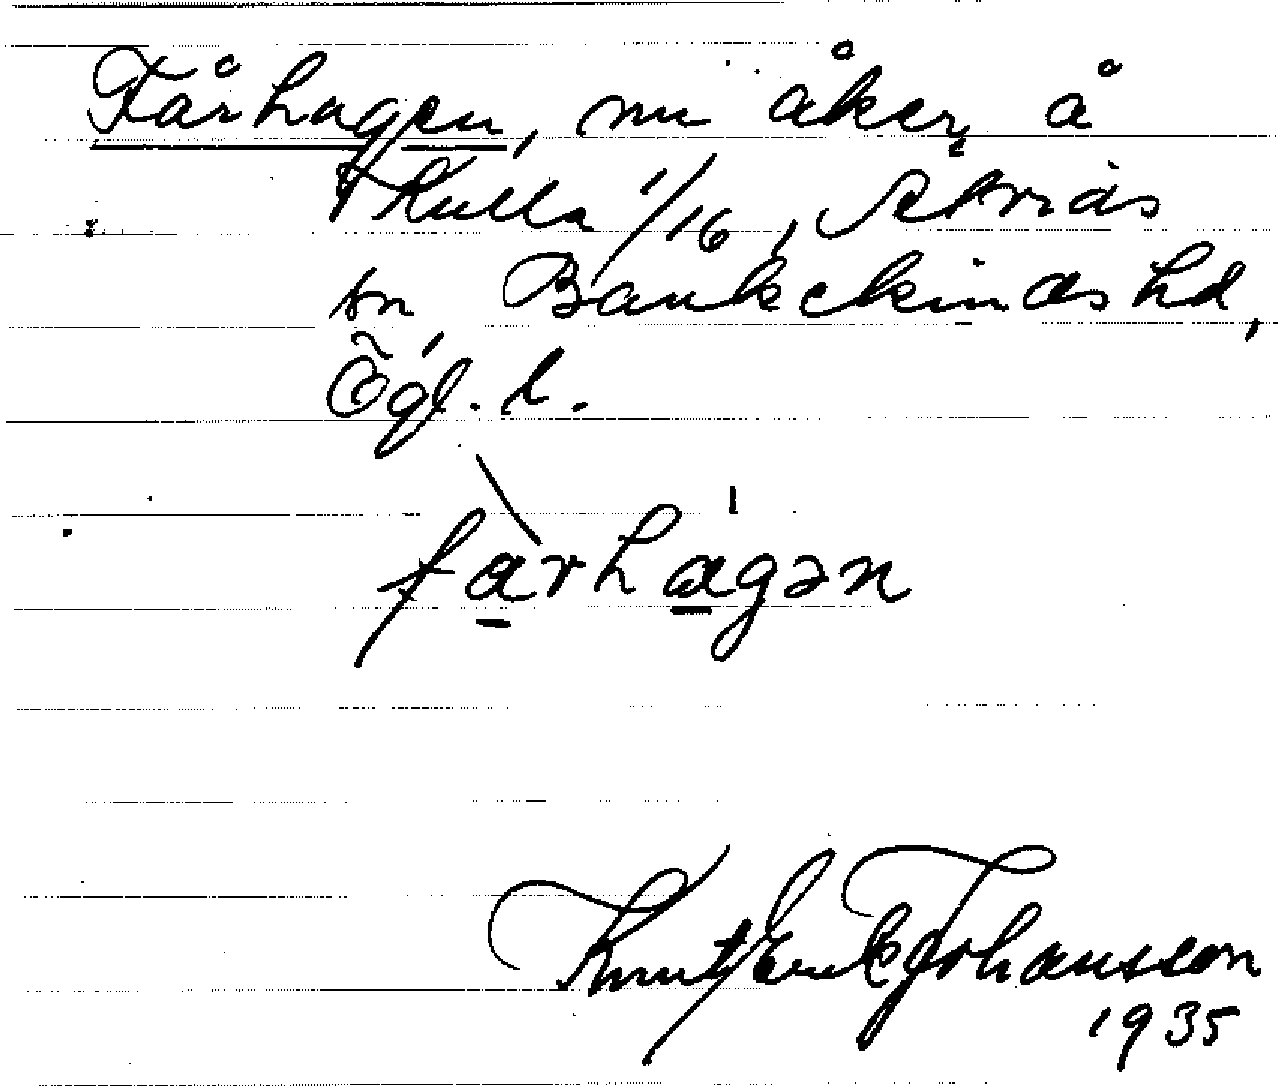 Fårhagen, nu åker, å
Kulla 1/16, Åtvids
sn Bankekinds hd,
Ögl. l.
fàrhágən
Knut Erik Johansson
1935